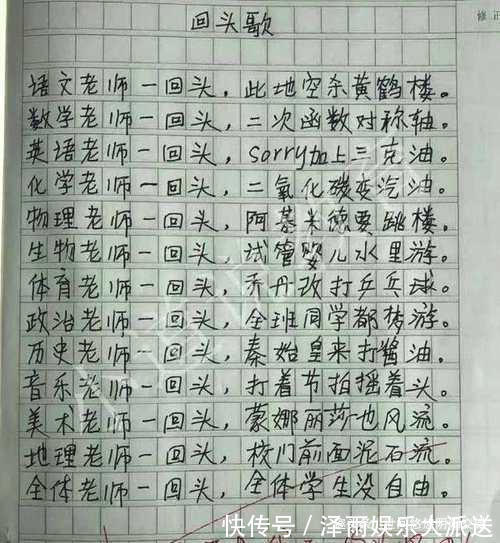 回头歌
修正
语文老师一回头，此地空杀黄鹤楼。
数学老师一回头，二次函数对称轴。
英语老师一回头，sorry加上三克油。
化学老师一回头，二氧化碳变汽油。
物理老师一回头，阿基米德要跳楼。
生物老师一回头，试管婴儿水里游。
体育老师一回头，乔丹改打乒乓球。
政治老师一回头，全班同学都梦游。
历史老师一回头，秦始皇来打酱油。
音乐老师一回头，打着节拍摇着头。
美术老师一回头，蒙娜丽莎也风流。
地理老师一回头，校门前面泥石流。
全体老师一回头，全体学生没自由。
快传号／泽雨娱乐大派送